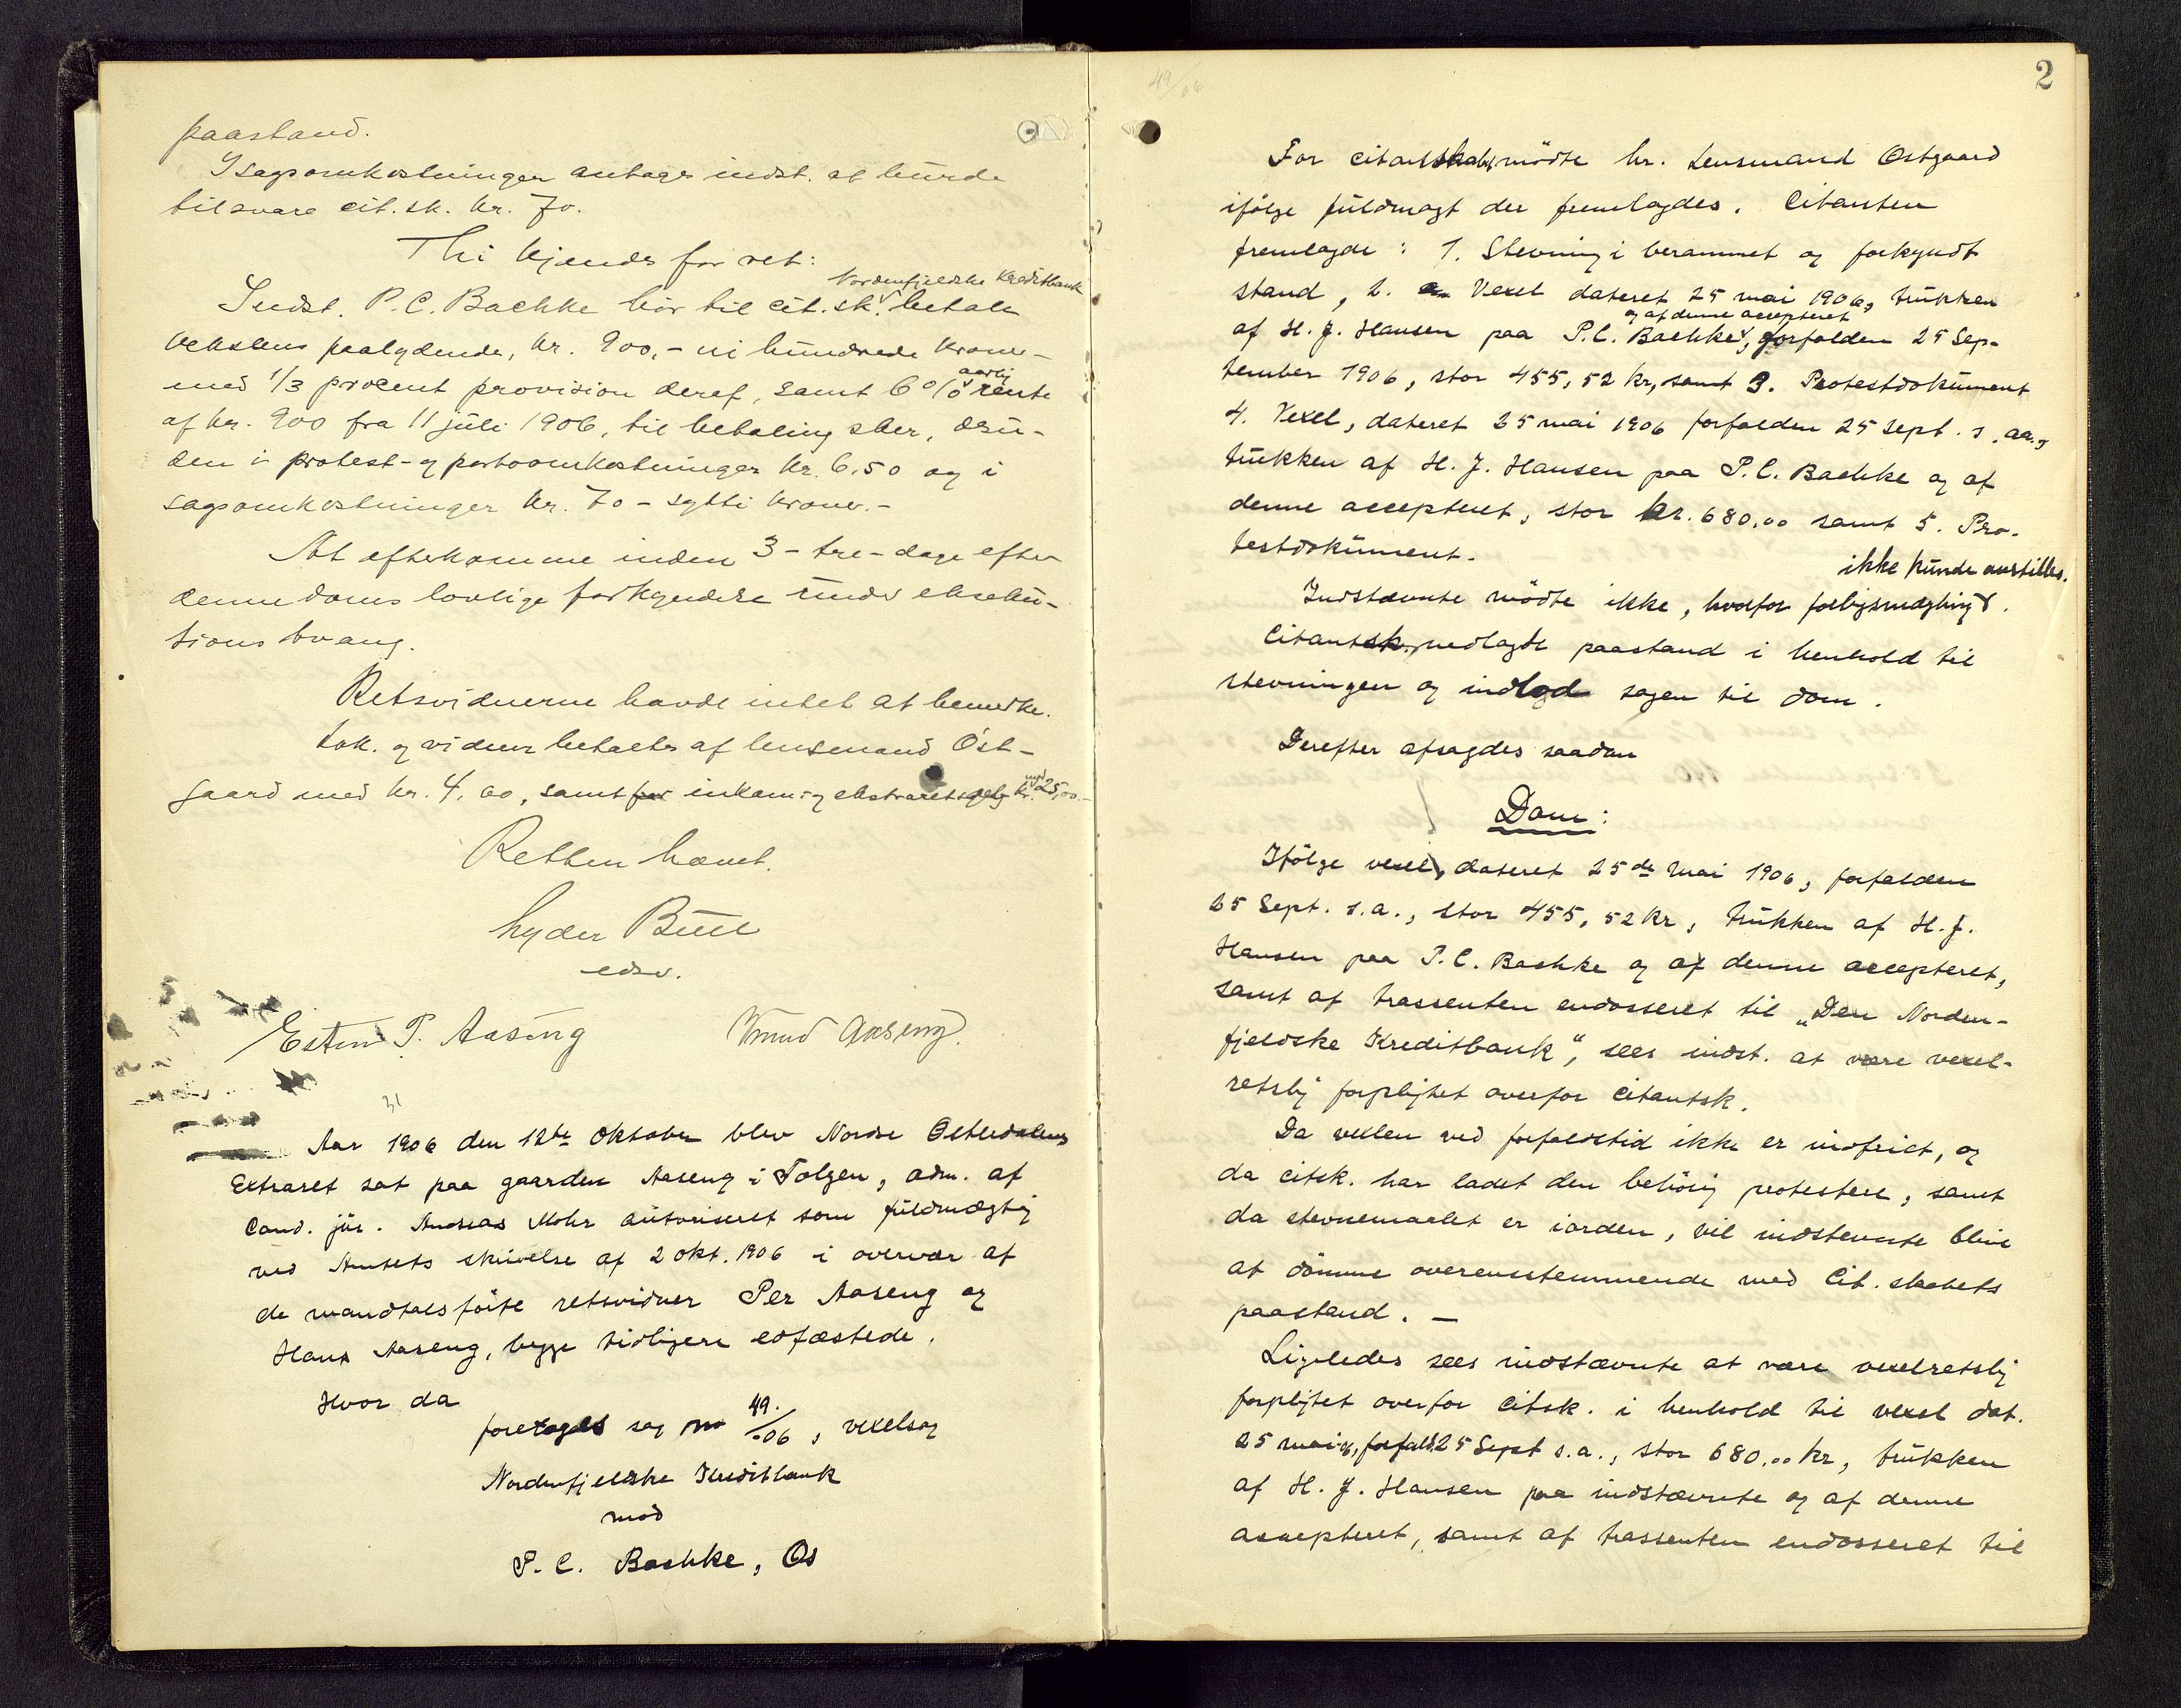 paastand.
I sagsomkostninger antages indst. at burde
tilsvare cit.sk. kr. 70.
Thi kjendes for ret:
Nordenfjeldske Kreditbank
Indst. P. C. Bachke bør til cit.sk. betale
vekslens paalydende, kr. 900,- ni hundrede kroner -
aarlig
med 1/3 procent provision deraf, samt 6 % rente
af kr. 900 fra 11 juli 1906, til betaling sker, desu-
den i protest- og portoomkostninger kr. 6,50 og i
sagsomkostninger kr. 70 - sytti kroner. -
At efterkomme inden 3 - tre - dage efter
denne doms lovlige forkyndelse under eksekú-
tions tvang.
Retsvidnerne havde intet at bemerke.
Lok. og vidner betaltes af lensmand Öst-
gaard med kr. 4,00, samt inkam- og ekstraretsgeb. med kr. 25,00.-
Retten hævet.
Lyder Bull
edsv.
Esten P. Aaseng Knud Aaseng.
31
Aar 1906 den 12te Oktober blev Nordre Österdalens
Extraret sat paa gaarden Aaseng i Tolgen, adm. af
Cand. jur. Andreas Mohr autoriseret som fuldmægtig
ved Amtets skrivelse af 2 okt. 1906 i overvær af
de mandtalsførte retsvidner Per Aaseng og
Hans Aaseng, begge tidligere edfæstede.
Hvor da
foretoges sag no 49./-06, vexelsag
Nordenfjeldske Kreditbank
mod
P. C. Bachke, Os
49/06
2
For citantskabet mödte hr. Lensmand Østgaard
ifölge fuldmagt der fremlagdes. Citanten
fremlagde: 1. Stevning i berammet og forkyndt
stand, 2. Vexel dateret 25 mai 1906, trukken
og af denne accepteret
af H. J. Hansen paa P. C. Bachke, forfalden 25 Sep-
tember 1906, stor 455,52 kr, samt 3. Protestdokument
4. Vexel, dateret 25 mai 1906 forfalden 25 Sept. s. aa.,
trukken af H. J. Hansen paa P. C. Bachke og af
denne accepteret, stor kr. 680,00 samt 5. Pro-
testdokument.
ikke kunde anstilles.
Indstævnte mödte ikke, hvorfor forligsmægling
Citantsk. nedlagde paastand i henhold til
stevningen og indlod sagen til dom.
Derefter afsagdes saadan
Dom:
Ifölge vexel, dateret 25de Mai 1906, forfalden
25 Sept. s.a., stor 455,52 kr, trukken af H. J.
Hansen paa P. C. Bachke og af denne accepteret,
samt af trassenten endosseret til „Den Norden-
fjeldske Kreditbank“, sees indst. at være vexel-
retslig forpligtet overfor Citantsk.
Da vexlen ved forfaldstid ikke er indfriet, og
da citsk. har ladet den behörig protestere, samt
da stevnemaalet er iorden, vil indstevnte blive
at dömme overensstemmende med Cit.skabets
paastand. -
Ligeledes sees indstævnte at være vexelretslig
forpligtet overfor citsk. i henhold til vexel dat.
25 mai 06, forfald. 25 Sept s.a., stor 680,00 kr, trukken
af H. J. Hansen paa indstævnte og af denne
accepteret, samt af trassenten endosseret til